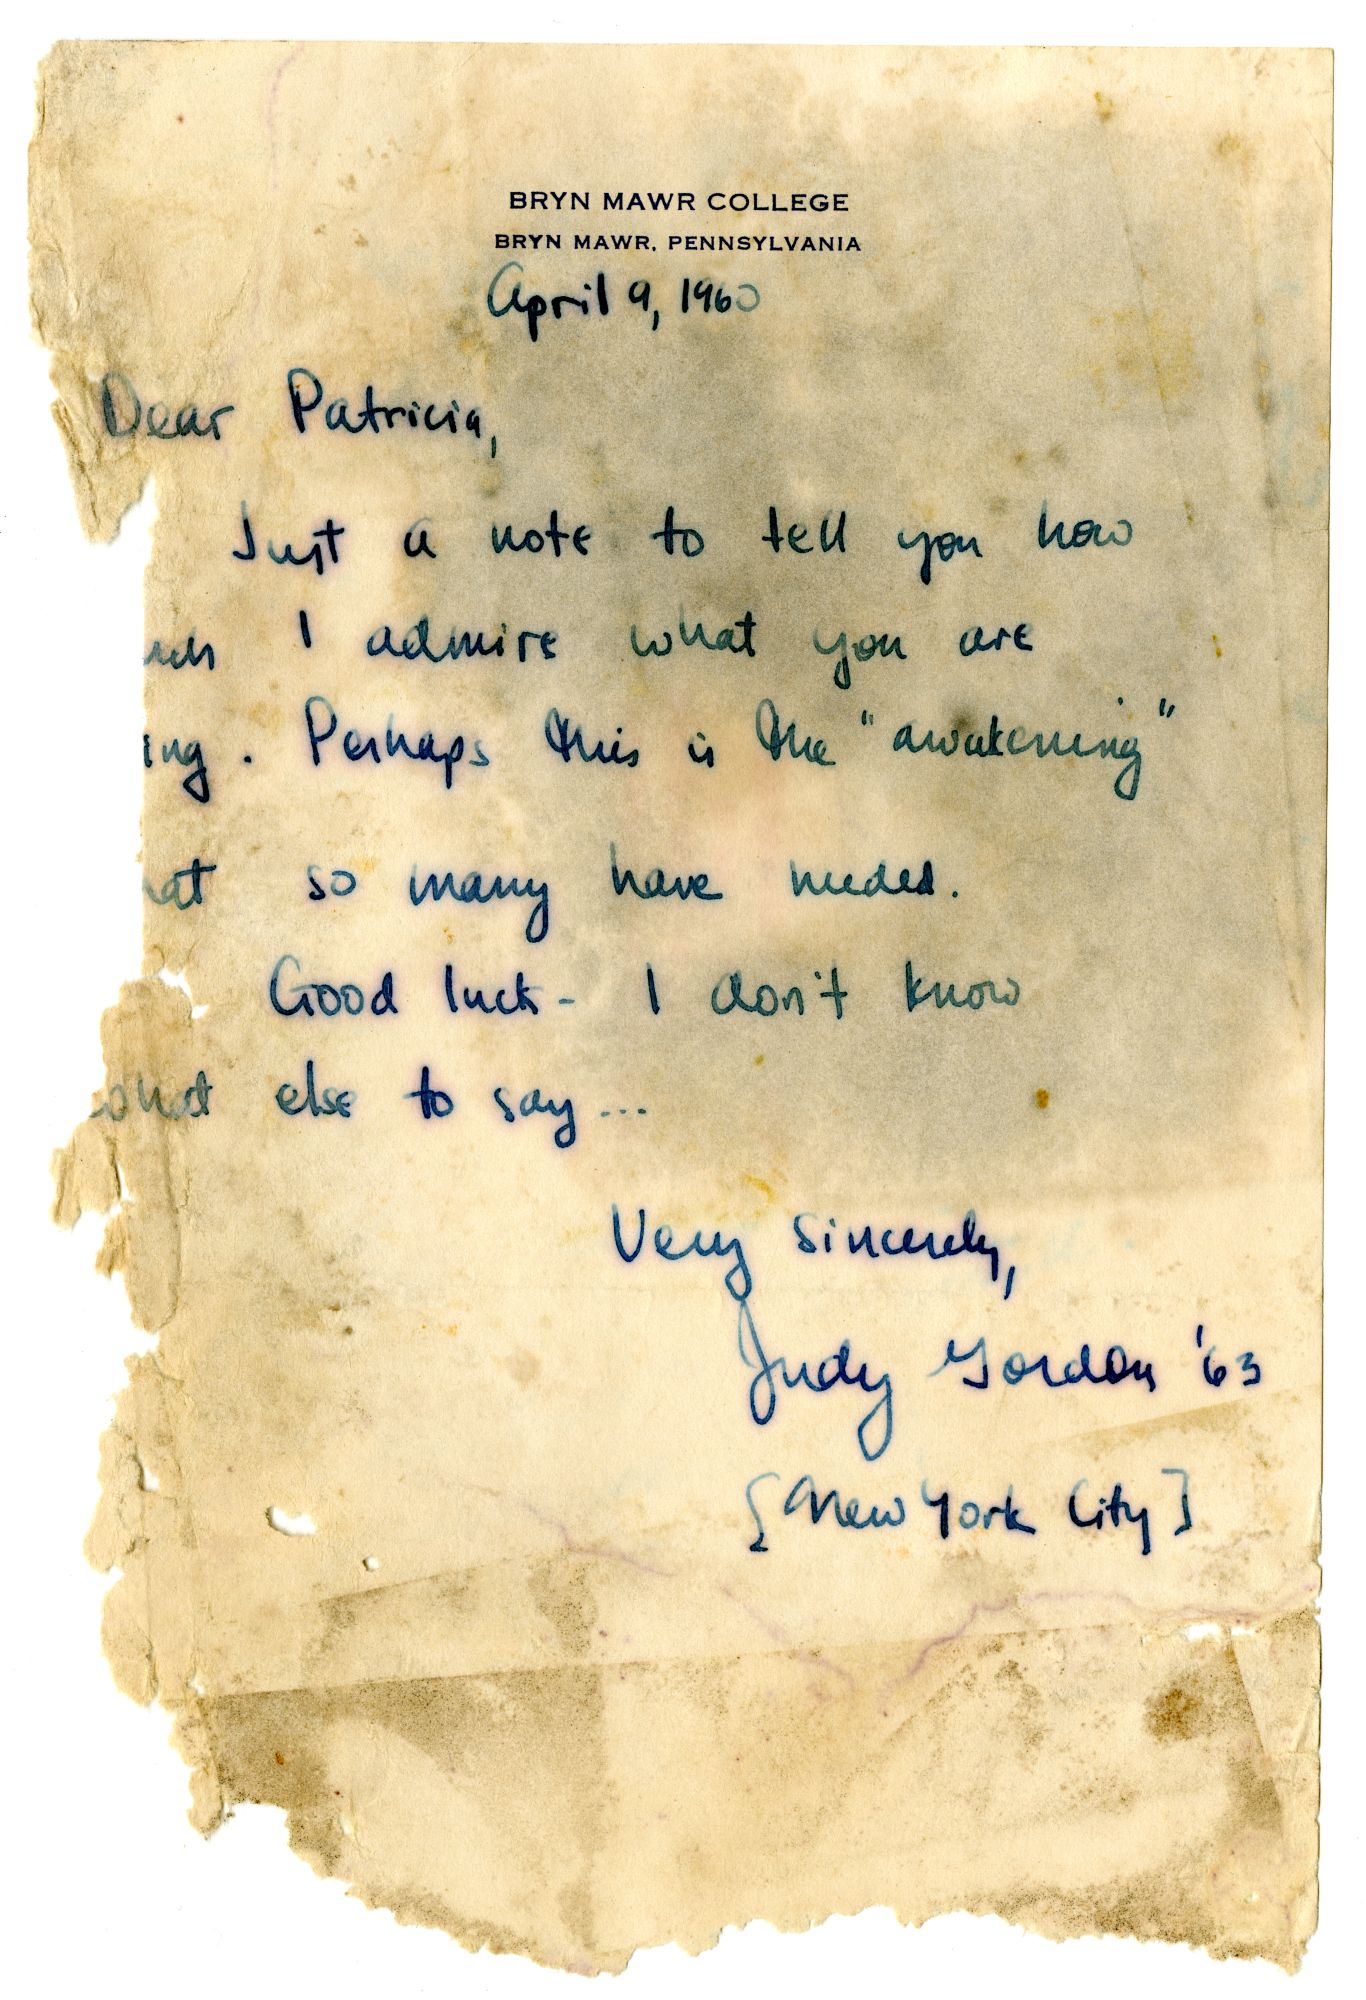 BRYN MAWR COLLEGE
BRYN MAWR, PENNSYLVANIA
April 9, 1960
Dear Patricia,
Just a note to tell you how
I admire what you are
ing. Perhaps this is the "awakening"
at so many have needed.
Good luck - I don't know
what else to say...
Very sincerely,
Judy Gordon '63
[New York City]